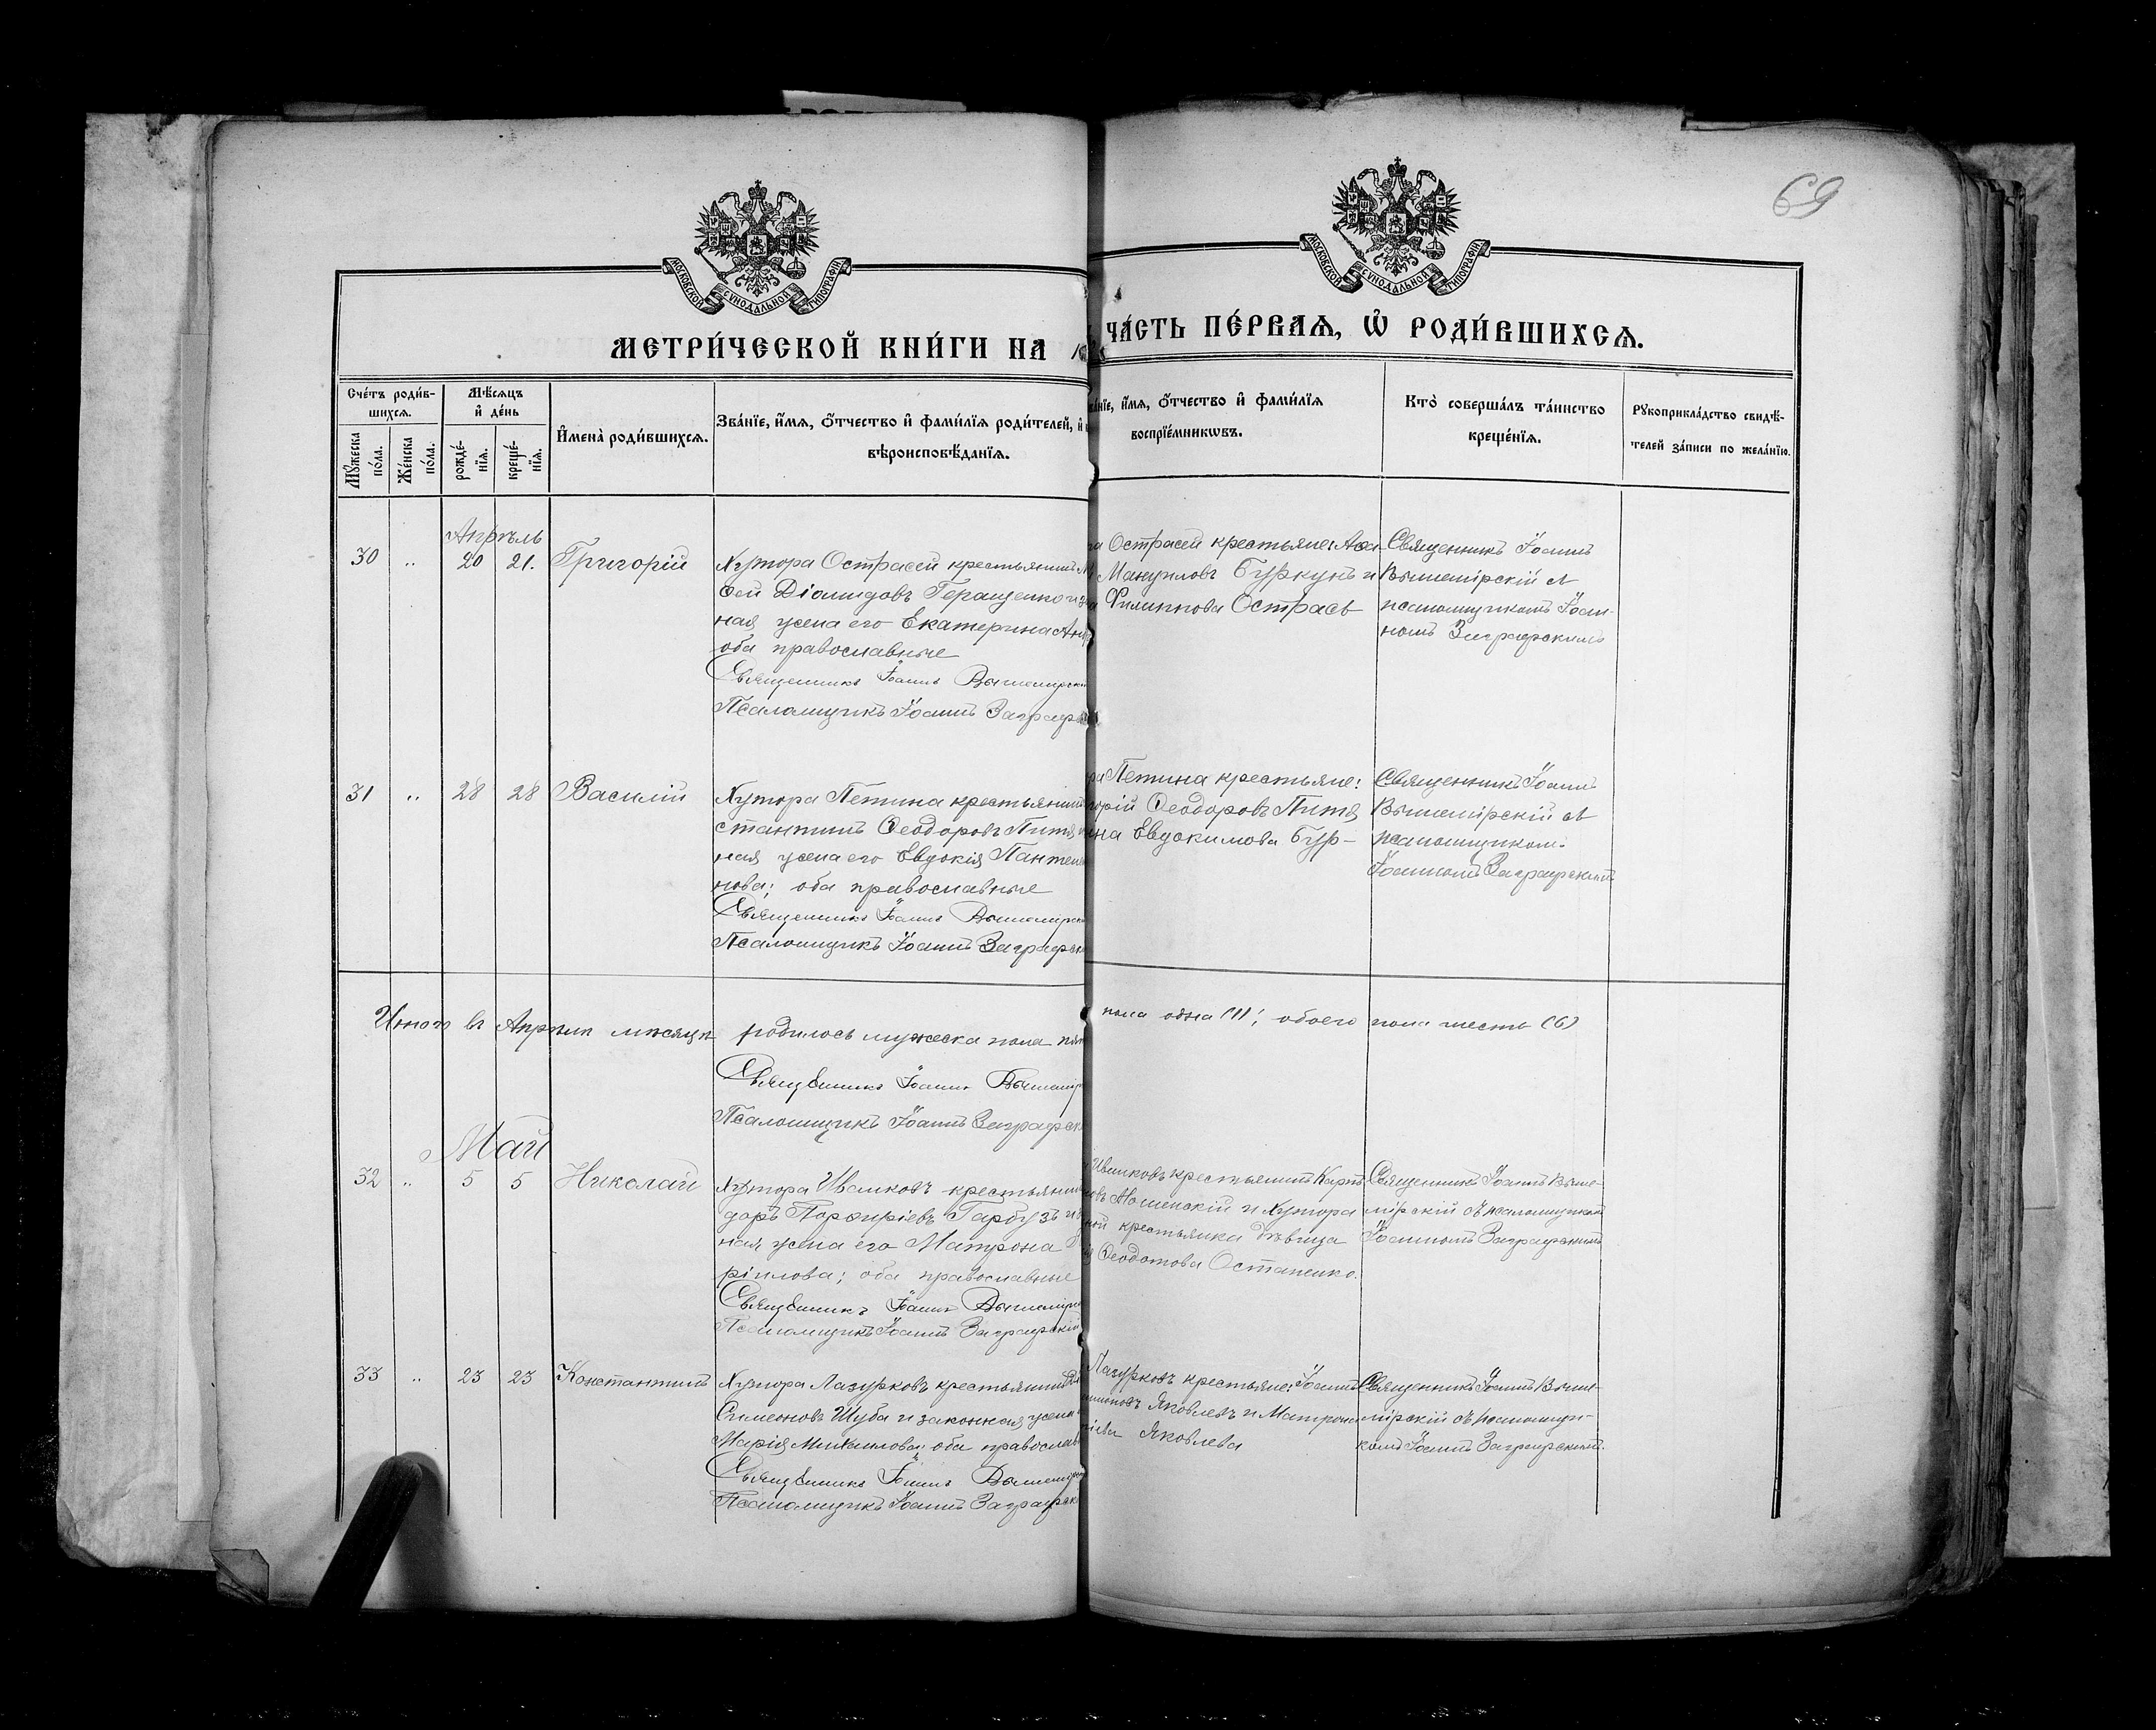 69
МОСКОВСКОЙ СѴНОДАЛЬНОЙ ТИПОГРАФІИ
МОСКОВСКОЙ СѴНОДАЛЬНОЙ ТИПОГРАФІИ
МЕТРИ́ЧЕСКОЙ КНИ́ГИ НА
ЧА́СТЬ ПЕ́РВАѦ, Ѡ҆ РОДИ́ВШИХСѦ.
Сче́тъ роди́в-
шихсѧ.
Мꙋ́жеска по́ла.
Же́нска по́ла.
Мѣ́сѧцъ
и҆ де́нь
рожде́-
нїѧ.
креще́-
нїѧ.
И҆мена̀ роди́вшихсѧ.
Зва́нїе, и҆́мѧ, ѻ҆́тчество и҆ фами́лїѧ роди́телей, и҆
вѣроисповѣ́данїѧ.
и҆́мѧ, ѻ҆́тчество и҆ фами́лїѧ
воспрїе́мникѡвъ.
Кто̀ соверша́лъ та́инство
креще́нїѧ.
Рꙋкоприкла́дство свидѣ́-
телей за́писи по жела́нїю.
Апрѣль
30 „ 20 21. Григорій
Хутора Острасей крестьянинъ
Діомидовъ Геращенко и
ная жена его Екатерина
оба православные
Священникъ Іоаннъ
Псаломщикъ Іоаннъ
Острасей крестьяне:
Мануиловъ Буркунъ и
Филиппова Острась
Священникъ Іоаннъ
Вышемірскій съ
псаломщикомъ Іоан-
номъ Заграфскимъ
31 „ 28 28 Василій
Хутора Петина крестьянинъ
стантинъ Ѳеодоровъ Питя
ная жена его Евдокія
нова; оба православные
Священникъ Іоаннъ
Псаломщикъ Іоаннъ
Петина крестьяне:
Ѳеодоровъ Питя
Евдокимова Бур-
Священникъ Іоаннъ
Вышемірскій съ
псаломщикомъ
Іоанномъ Заграфскимъ
Итого въ Апрѣлѣ мѣсяцѣ родилось мужеска пола
пола одна (1); обоего пола шесть (6)
Священникъ Іоаннъ
Псаломщикъ Іоаннъ
Май
32 „ 5 5 Николай
Хутора Иваиковъ
Порфиріевъ Гарбузъ и
ная жена его Матрона
рилова; оба православные
Священникъ Іоаннъ
Псаломщикъ Іоаннъ Заграфскій
крестьянинъ
и Хутора
крестьянка дѣвица
Ѳеодотова Остапенко.
Священникъ Іоаннъ Выше-
мірскій съ псаломщикомъ
Іоанномъ Заграфскимъ
33 „ 23 23 Константинъ
Хутора Лазурковъ крестьянинъ
Симеоновъ Шуба и законная жена
Марія Михаилова; оба
Священникъ Іоаннъ
Псаломщикъ Іоаннъ
Лазурковъ крестьяне: Іоаннъ
Яковлевъ и Матрона
Яковлева
Священникъ Іоаннъ Выше-
мірскій съ псаломщи-
комъ Іоанномъ Заграфскимъ.